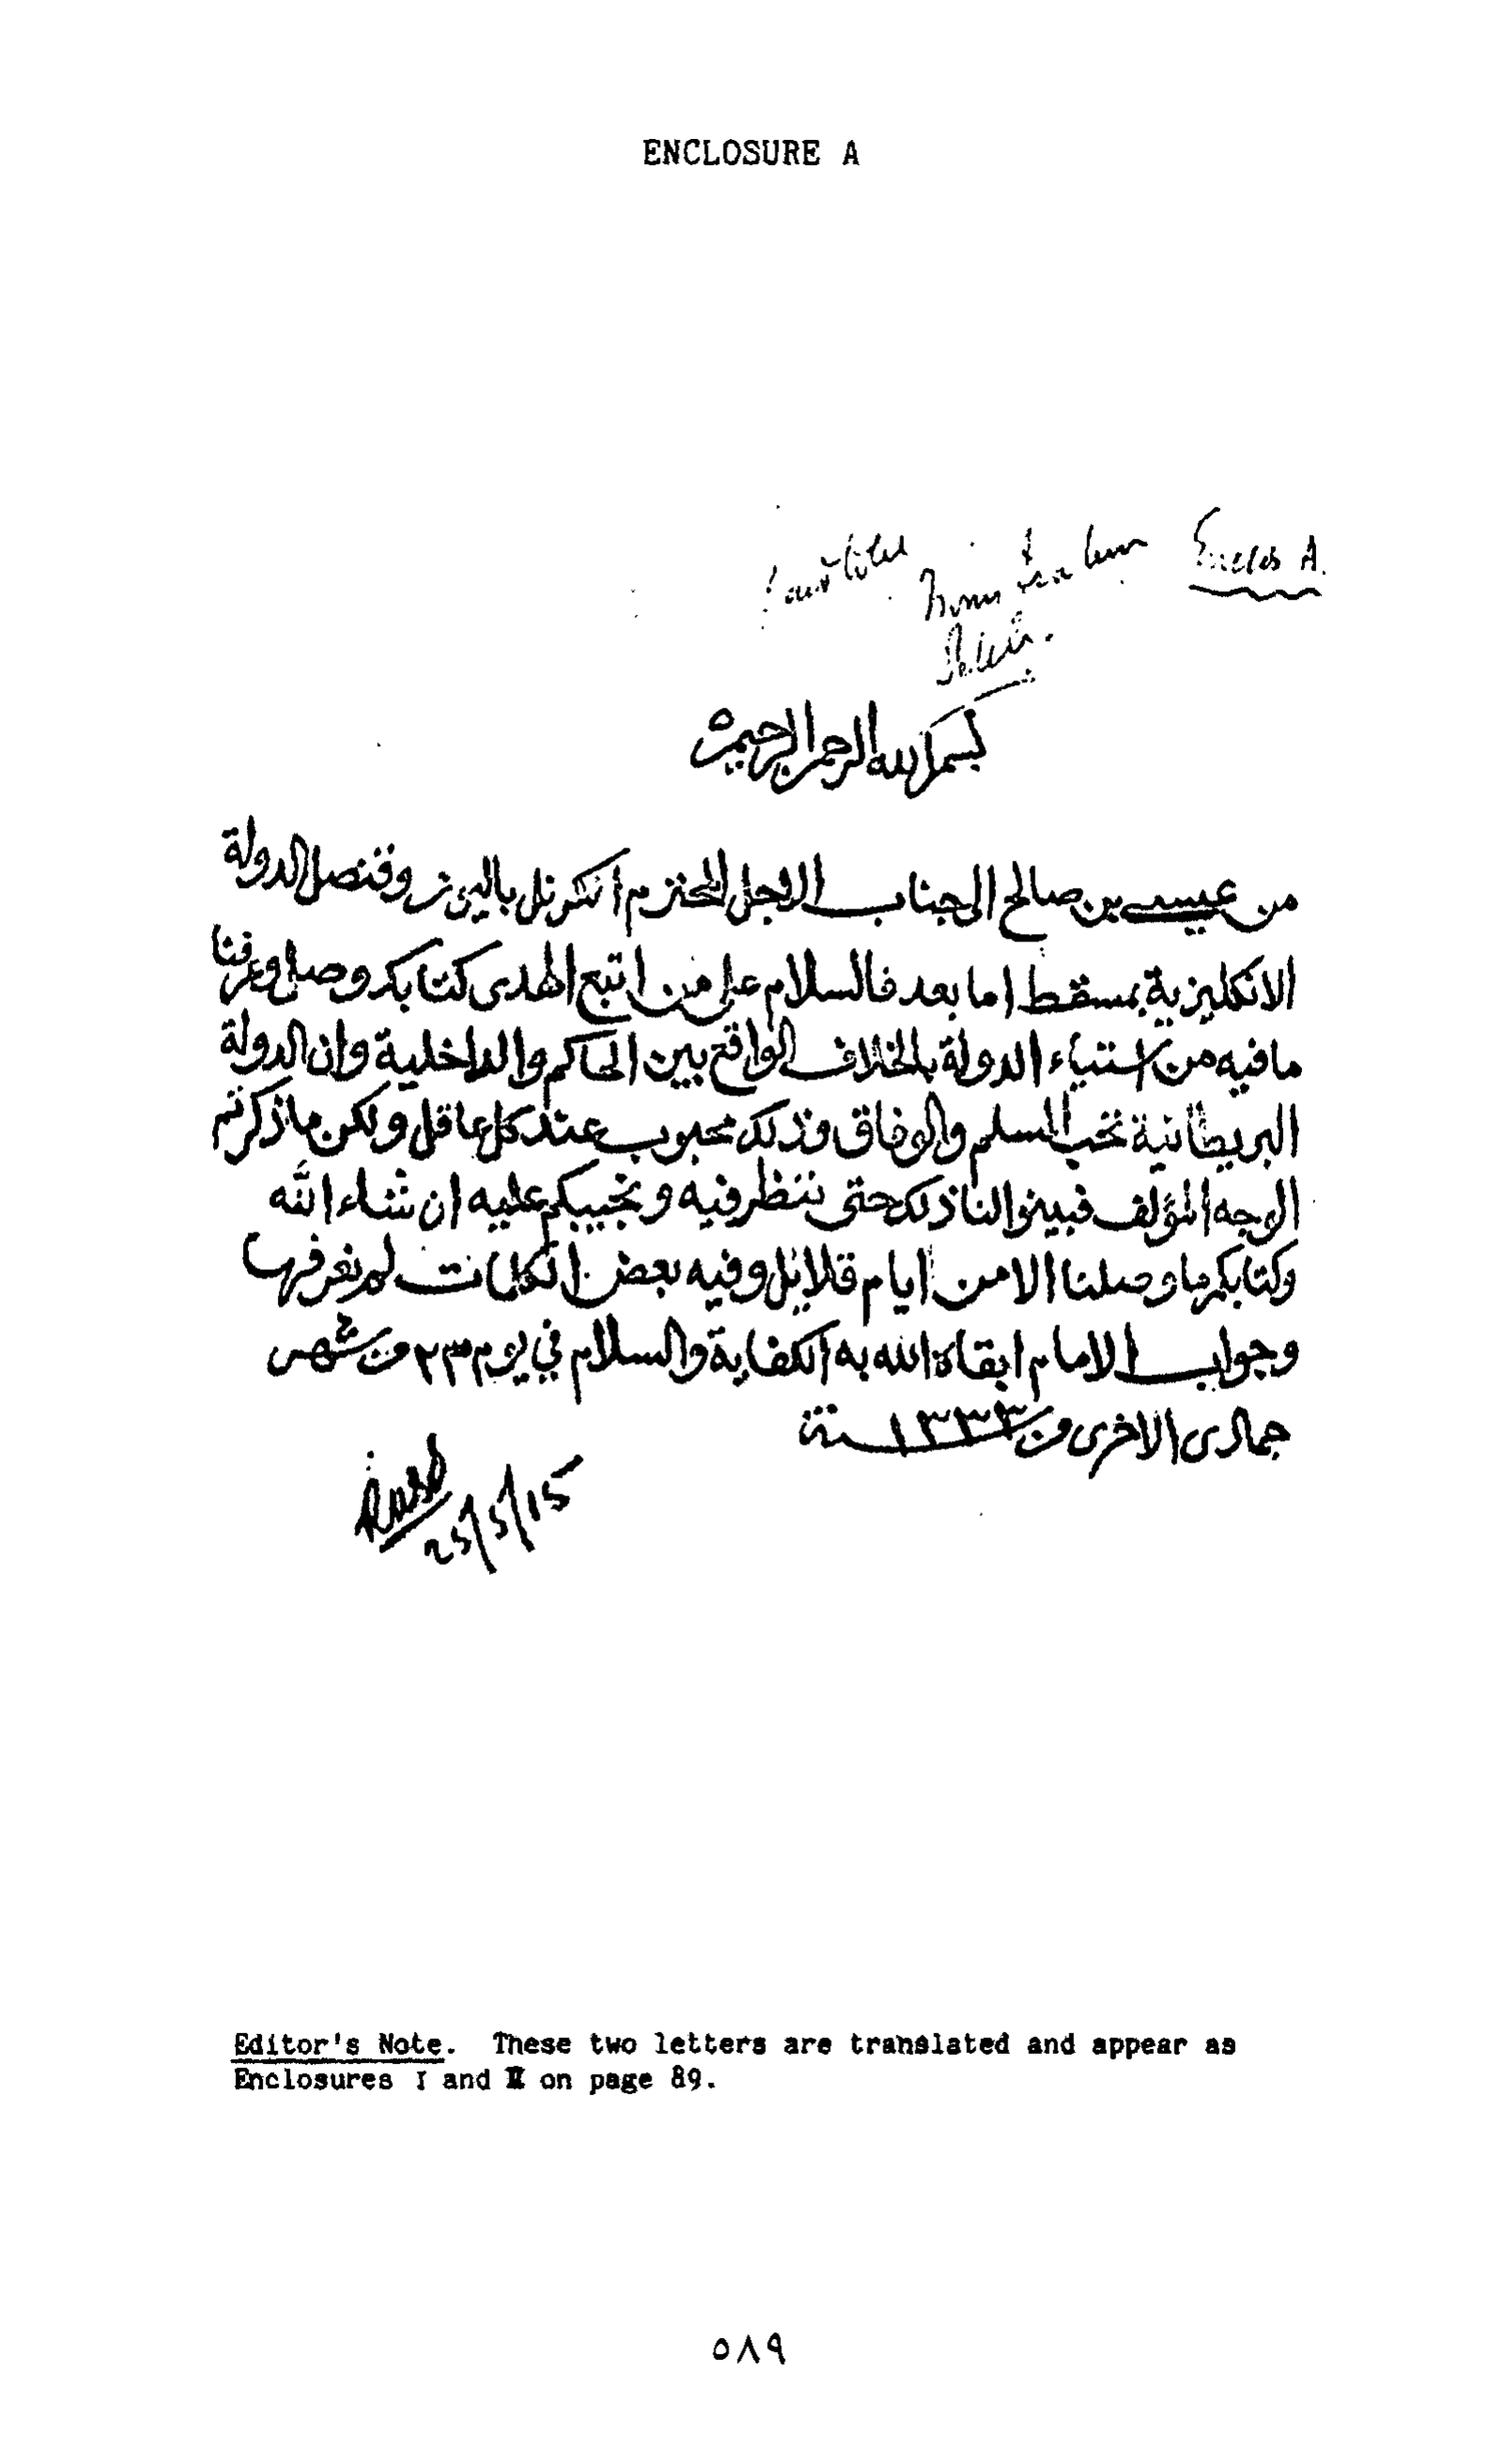 ENCLOSURE A
Enclos A.
from
بسم الله الرحمن الرحيم
من عيسى بن صالح الى جناب الاجل المحترم الكرنل بالين ز وقنصل الدولة
الانكليزية بمسقط اما بعد فالسلام على من اتبع الهدى كتابكم وصل وعرفنا
ما فيه من استياء الدولة بالخلاف الواقع بين الحاكم والداخلية وان الدولة
البريطانية تحب السلم والوفاق وذلك محبوب عند كل عاقل ولكن ما ذكرتم
الوجه المؤلف فبينوا لنا ذلك حتى ننظر فيه ونجيبكم عليه ان شاء الله
وكتابكم ما وصلنا الا من ايام قلايل وفيه بعض الكلمات لم نعرفها
وجواب الامام ابقاه الله به الكفاية والسلام في يوم ٢٣ من شهر
جمادى الاخرى من ١٣٣٣ سنة
25/5/15
Editor's Note. These two letters are translated and appear as
Enclosures I and II on page 89.
٥٨٩